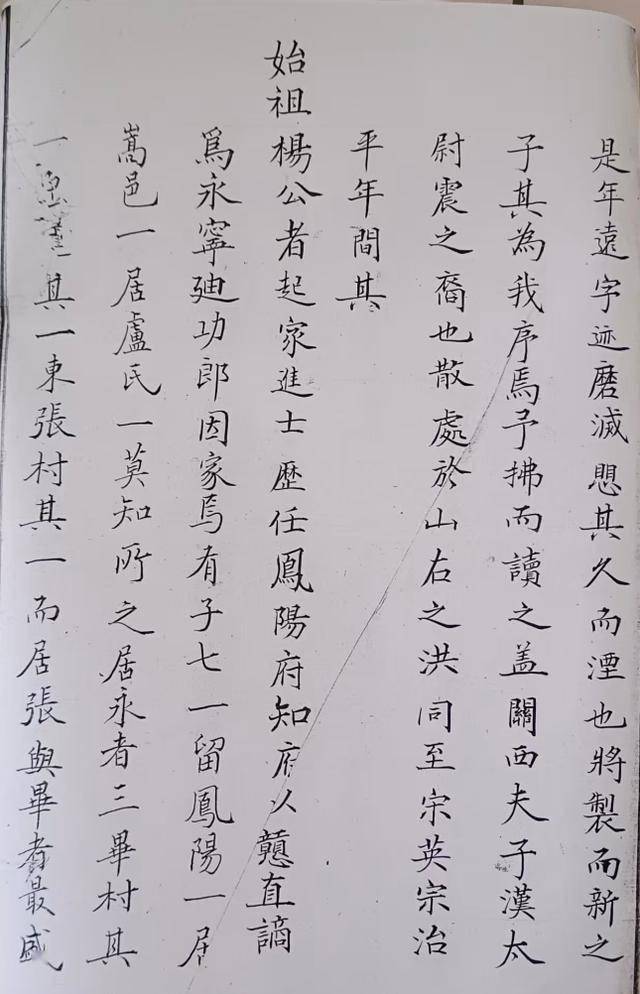 是年遠字迹磨滅愳其久而湮也將製而新之
子其為我序焉予拂而讀之盖關西夫子漢太
尉震之裔也散處於山右之洪同至宗英宗治
平年間其
始祖楊公者起家進士歷任鳳陽府知府以戇直謫
爲永寧廸功郎因家焉有子七一留鳳陽一居
嵩邑一居盧氏一莫知所之居永者三畢村其
一其一東張村其一而居張與畢者最盛